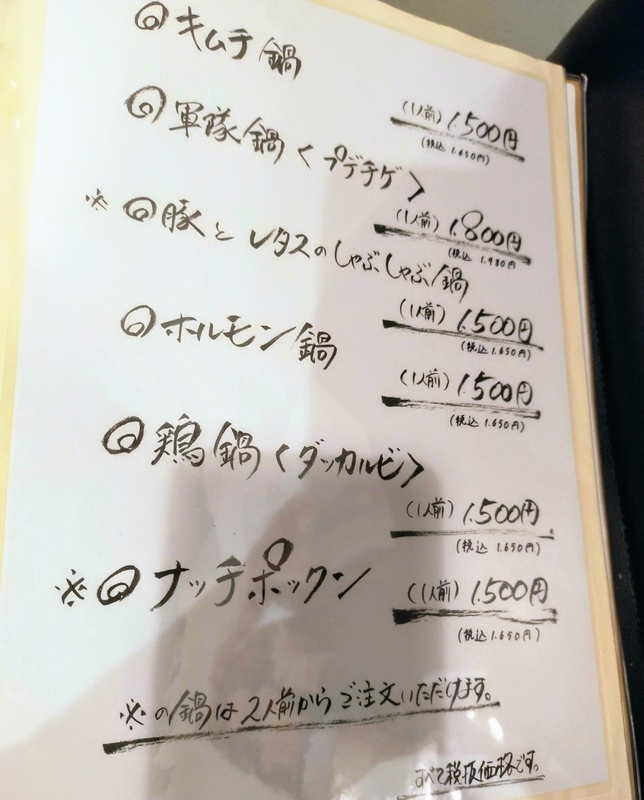 ◎キムチ鍋
(1人前) 1.500円
(税込 1.650円)
◎軍隊鍋<プデチゲ>
(1人前) 1.800円
(税込 1.980円
※◎豚とレタスのしゃぶしゃぶ鍋
(1人前) 1.500円
(税込 1.650円)
◎ホルモン鍋
(1人前) 1.500円
(税込 1.650円)
◎鶏鍋<ダッカルビ>
(1人前) 1.500円
(税込 1.650円)
※◎ナッチポックン
(1人前) 1.500円
(税込 1.650円)
※の鍋は2人前からご注文いただけます。
すべて税抜価格です。